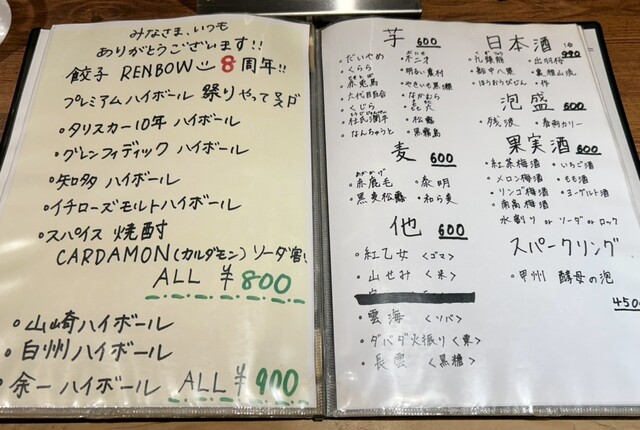 みなさま、いつも
ありがとうございます!!
餃子 RENBOW 8周年!!
プレミアムハイボール 祭りやって
・タリスカー10年 ハイボール
・グレンフィディック ハイボール
・知多 ハイボール
・イチローズモルトハイボール
・スパイス 焼酎
CARDAMON(カルダモン)ソーダ割
ALL ¥800
・山崎ハイボール
・白州ハイボール
・余一ハイボール ALL ¥900
芋 600
・だいやめ
・くらら
・赤兎馬
・六代目百合
・くじら
・杜氏潤平
・なんちゅうと
・明るい農村
・やきいも黒瀬
・なかむら
・松露
・黒霧島
麦 600
・赤鹿毛
・黒麦松露
・泰明
・和ら麦
他 600
・紅乙女 <ゴマ>
・山せみ <米>
・雲海 <ソバ>
・ダバダ火振り <栗>
・長雲 <黒糖>
日本酒 990
・九頭龍
・出羽桜
・ほうおうびでん
・作
泡盛 600
・残波
・春雨カリー
果実酒 600
・紅茶梅酒
・いちご酒
・メロン梅酒
・もも酒
・リンゴ梅酒
・ヨーグルト酒
・南高梅酒
水割り or ソーダ or ロック
スパークリング
・甲州 酵母の泡
450